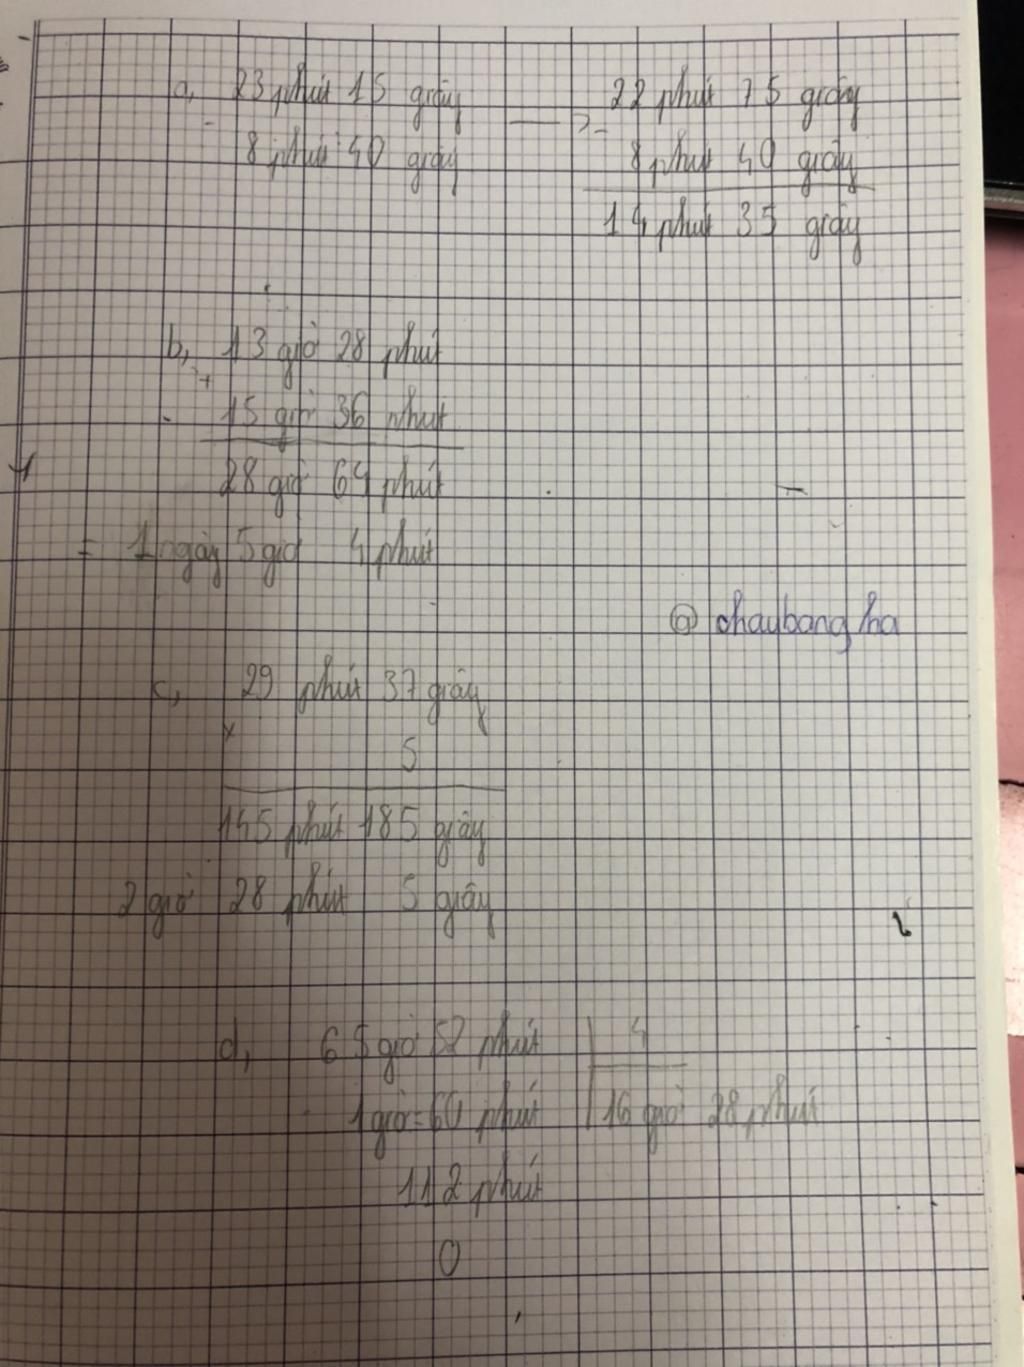 a, 23 phút 15 giây → 22 phút 75 giây
- 8 phút 40 giây - 8 phút 40 giây
14 phút 35 giây
b, 13 giờ 28 phút
+
15 giờ 36 phút
28 giờ 64 phút
= 1 ngày 5 giờ 4 phút
@ chaubangha
c, 29 phút 37 giây
x
5
145 phút 185 giây
2 giờ 28 phút 5 giây
d, 65 giờ 52 phút 4
1 giờ = 60 phút 16 giờ 28 phút
112 phút
0